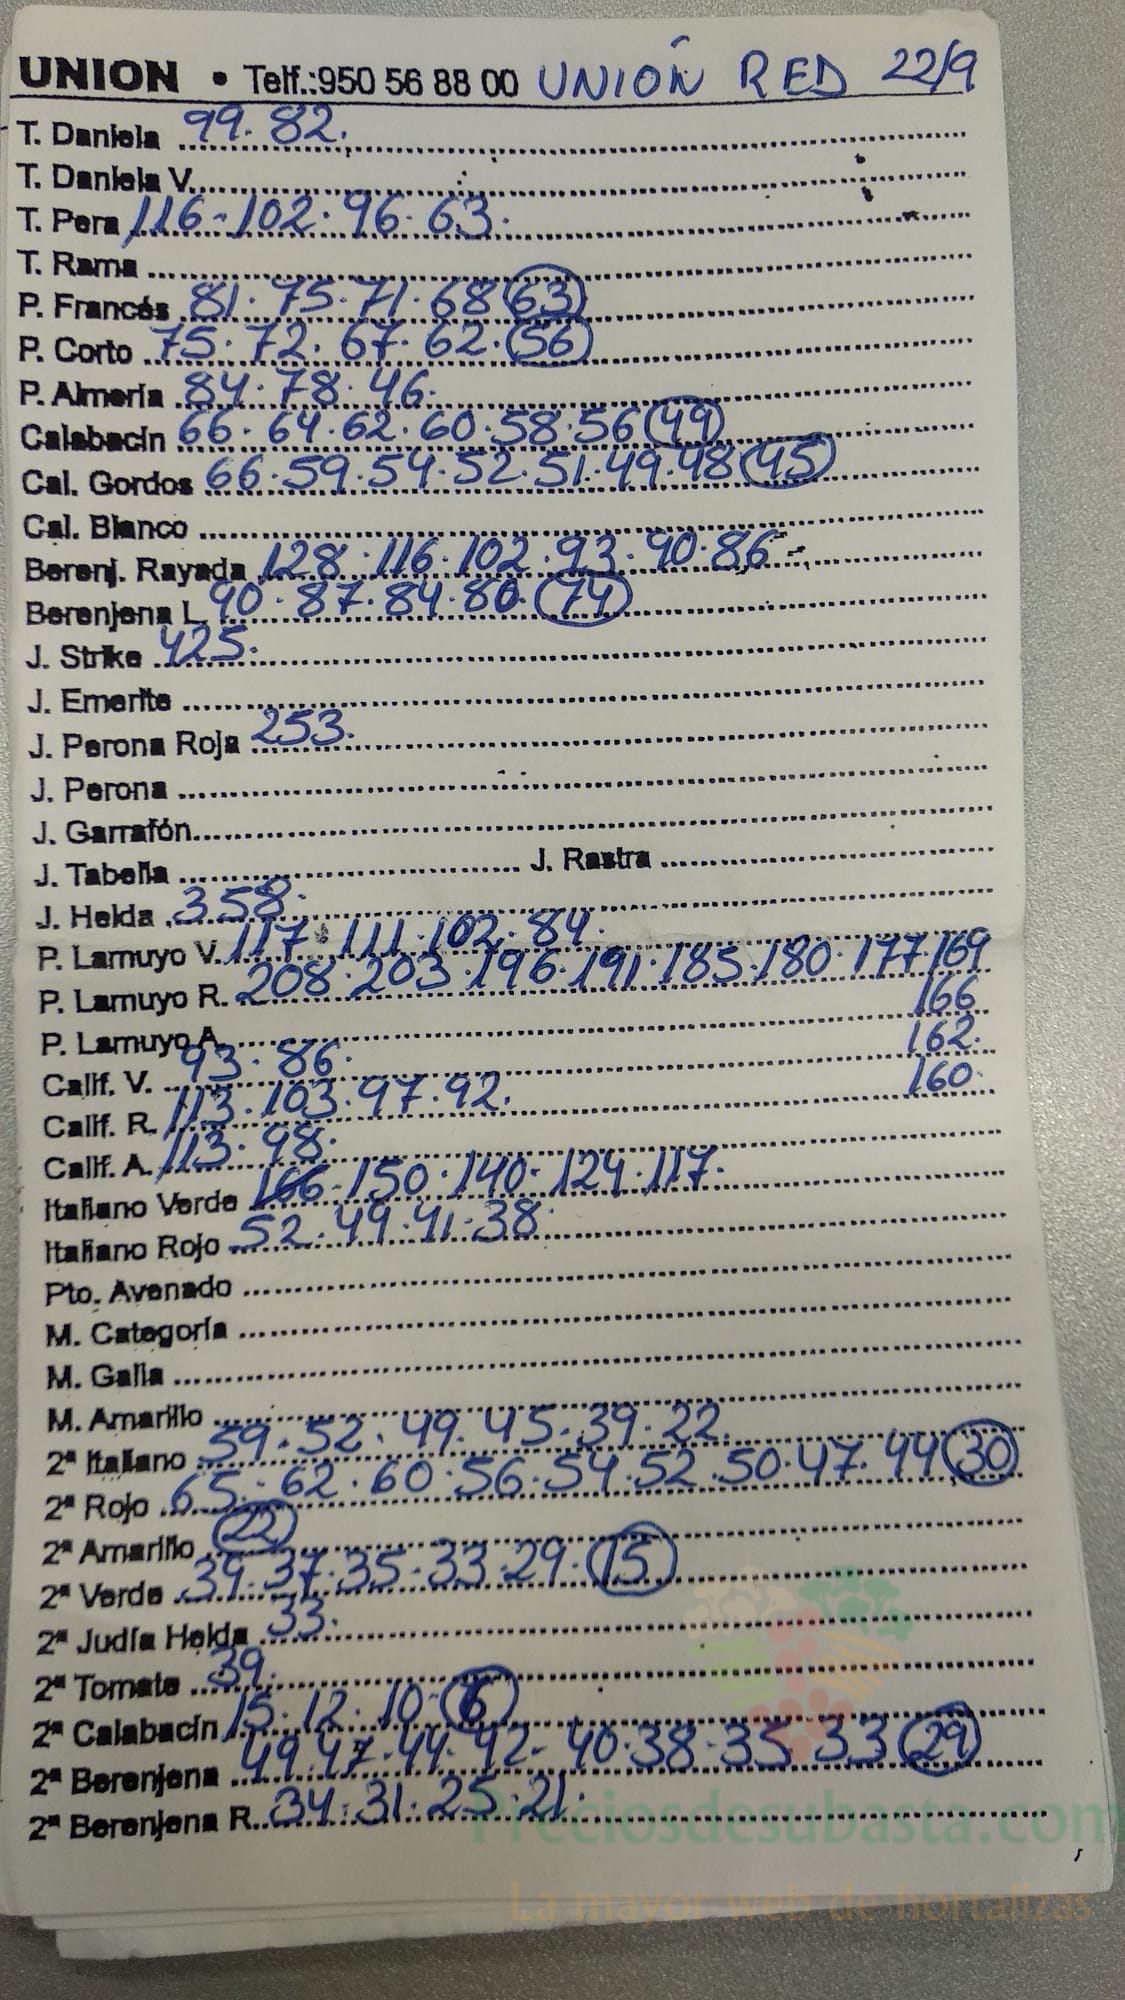 UNION • Telf.:950 56 88 00 UNIÓN RED 22/9
T. Daniela 99. 82.
T. Daniela V.
T. Pera 116-102. 96. 63.
T. Rama
P. Francés 81. 75. 71. 68 63
P. Corto 75. 72. 67. 62. 56
P. Almería 84. 78. 46.
Calabacín 66. 64. 62. 60. 58. 56 49
Cal. Gordos 66. 59. 54. 52. 51. 49. 48 45
Cal. Blanco
Berenj. Rayada 128. 116. 102. 93. 90. 86-
Berenjena L. 90. 87. 84. 80. 74
J. Strike 425.
J. Emerite
J. Perona Roja 253.
J. Perona
J. Garrafón
J. Tabella J. Rastra
J. Helda 358.
P. Lamuyo V. 117. 111. 102. 84.
P. Lamuyo R. 208. 203. 196. 191. 185. 180. 177 169
166
P. Lamuyo A.
162.
Calif. V. 93. 86.
160.
Calif. R. 113. 103. 97. 92.
Calif. A. 113. 98.
Italiano Verde 166-150. 140- 124. 117.
Italiano Rojo 52. 49. 41. 38.
Pto. Avenado
M. Categoría
M. Galia
M. Amarillo
2ª Italiano 59. 52. 49. 45. 39. 22.
2ª Rojo 65. 62. 60. 56. 54. 52. 50. 47. 44 30
2ª Amarillo 22
2ª Verde 39. 37. 35. 33. 29. 15
2ª Judía Helda 33.
2ª Tomate 39.
2ª Calabacín 15. 12. 10- 6
2ª Berenjena 49. 47. 44. 42- 40. 38- 35. 33 29
2ª Berenjena R. 34. 31. 25. 21.
Preciosdesubasta.com
La mayor web de hortalizas